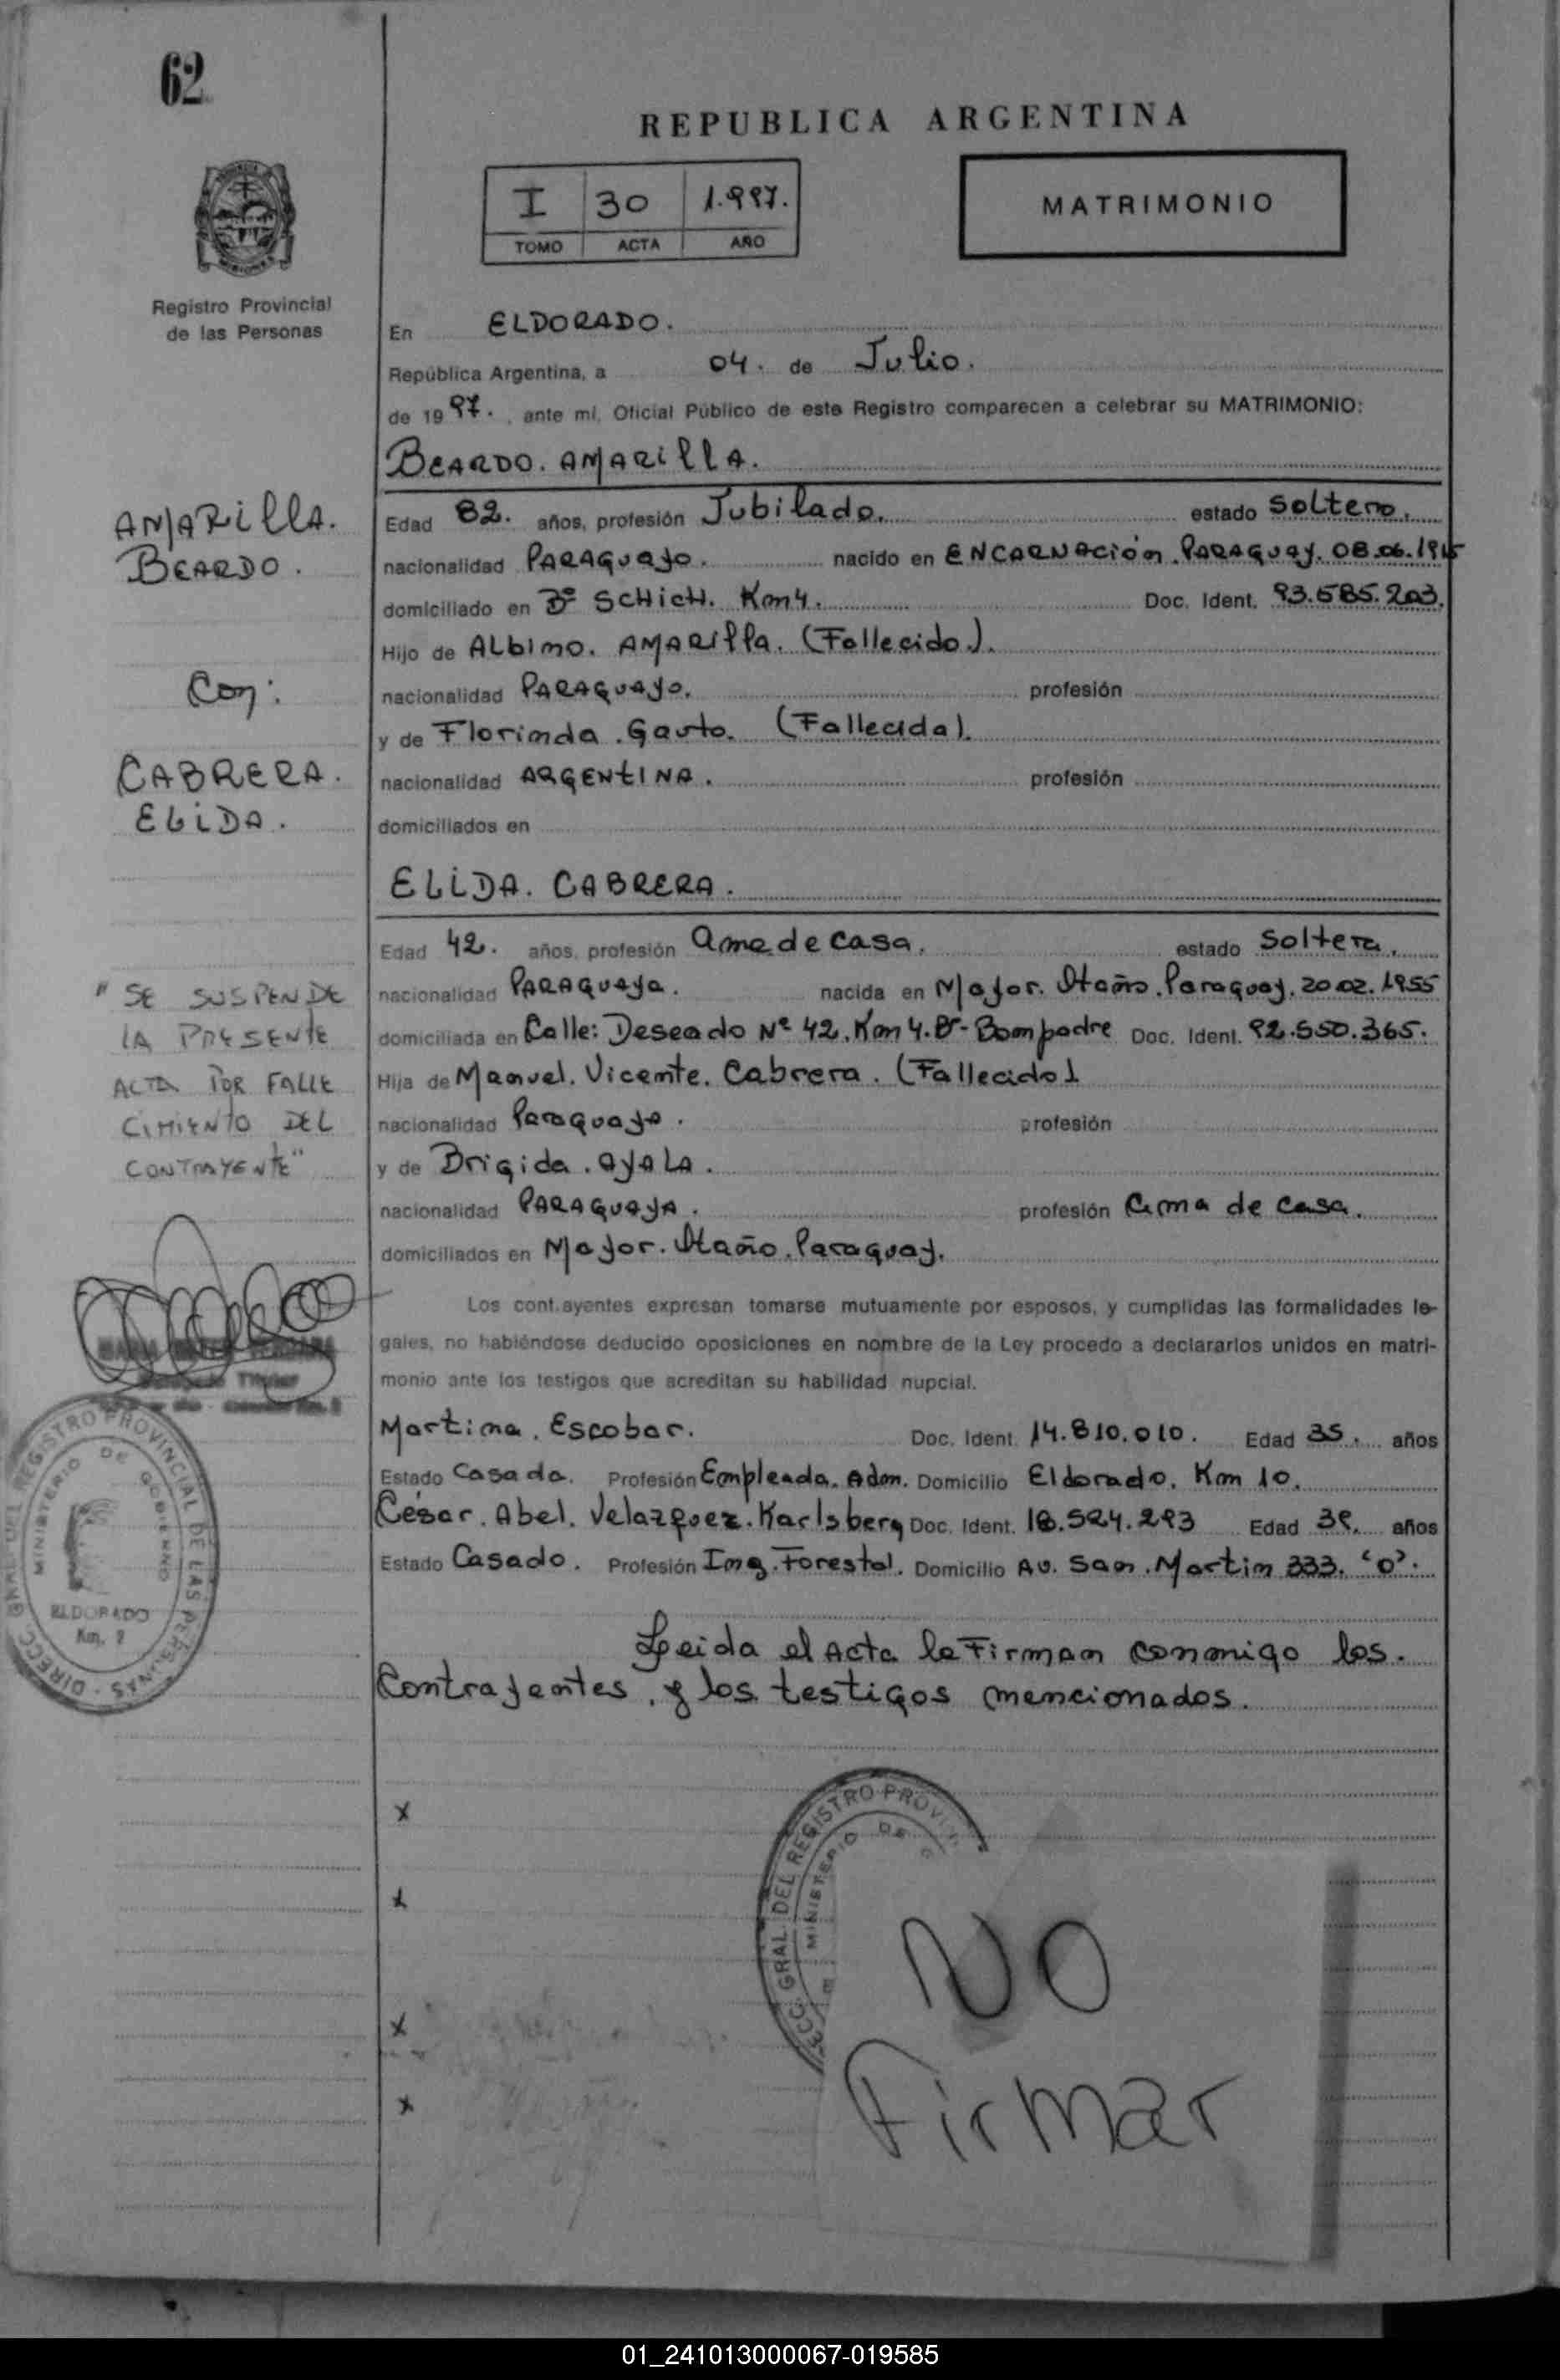 62
REPUBLICA ARGENTINA
I 30 1.997.
TOMO ACTA AÑO
MATRIMONIO
Registro Provincial
de las Personas
En ELDORADO.
República Argentina, a 04. de Julio.
de 1997. , ante mí, Oficial Público de este Registro comparecen a celebrar su MATRIMONIO:
BEARDO. AMARILLA.
AMARILLA.
BEARDO.
Con:
CABRERA.
ELIDA.
Edad 82. años, profesión Jubilado. estado Soltero.
nacionalidad PARAGUAYO. nacido en ENCARNACIÓN. PARAGUAY. 08.06.1915
domiciliado en Bº SCHICH. Km 4. Doc. Ident. 93.585.203.
Hijo de ALbino. AMARIlla. (Fallecido.).
nacionalidad PARAGUAYO. profesión
y de Florinda. Gauto. (Fallecida).
nacionalidad ARGENTINA. profesión
domiciliados en
ELIDA. CABRERA.
Edad 42. años, profesión ama de casa. estado Soltera.
nacionalidad PARAGUAYA. nacida en Mayor. Otaño. Paraguay. 20.02.1955
domiciliada en Calle: Deseado Nº 42. Km 4. Bº- Bompadre Doc. Ident. 92.550.365.
Hija de Manuel. Vicente. Cabrera. (Fallecido)
nacionalidad Paraguayo. profesión
y de Brigida. AYALA.
nacionalidad PARAGUAYA. profesión Ama de casa.
domiciliados en Mayor. Otaño. Paraguay.
" SE SUSPENDE
LA PRESENTE
ACTA POR FALLE
CIMIENTO DEL
CONTRAYENTE"
Los contrayentes expresan tomarse mutuamente por esposos, y cumplidas las formalidades le-
gales, no habiéndose deducido oposiciones en nombre de la Ley procedo a declararlos unidos en matri-
monio ante los testigos que acreditan su habilidad nupcial.
Martina. Escobar. Doc. Ident. 14.810.010. Edad 35. años
Estado Casada. Profesión Empleada. Adm. Domicilio Eldorado. Km 10.
César. Abel. Velazquez. Karlsberg Doc. Ident. 18.524.293 Edad años
Estado Casado. Profesión Ing. Forestal. Domicilio Av. San. Martin 333. 'O'.
Leida el Acta la Firman conmigo los.
Contrayentes. y los testigos mencionados.
DIRECC. GRAL. DEL REGISTRO PROVINCIAL DE LAS PERSONAS
MINISTERIO DE GOBIERNO
ELDORADO
x
x
x
x
ECC. GRAL. DEL REGISTRO PROVIN
MINISTERIO DE
NO
Firmar
01_241013000067-019585